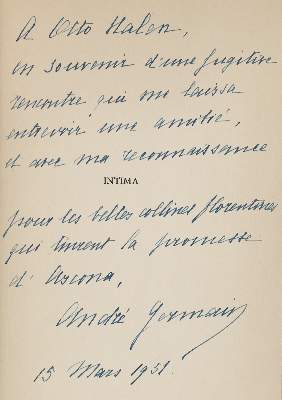 A Otto Halen,
en souvenir d'une fugitive
rencontre qui me laissa
entrevoir une amitié,
et avec ma reconnaissance
INTIMA
pour les belles collines florentines
qui tinrent la promesse
d'Ascona,
André Germain
15 Mars 1931.